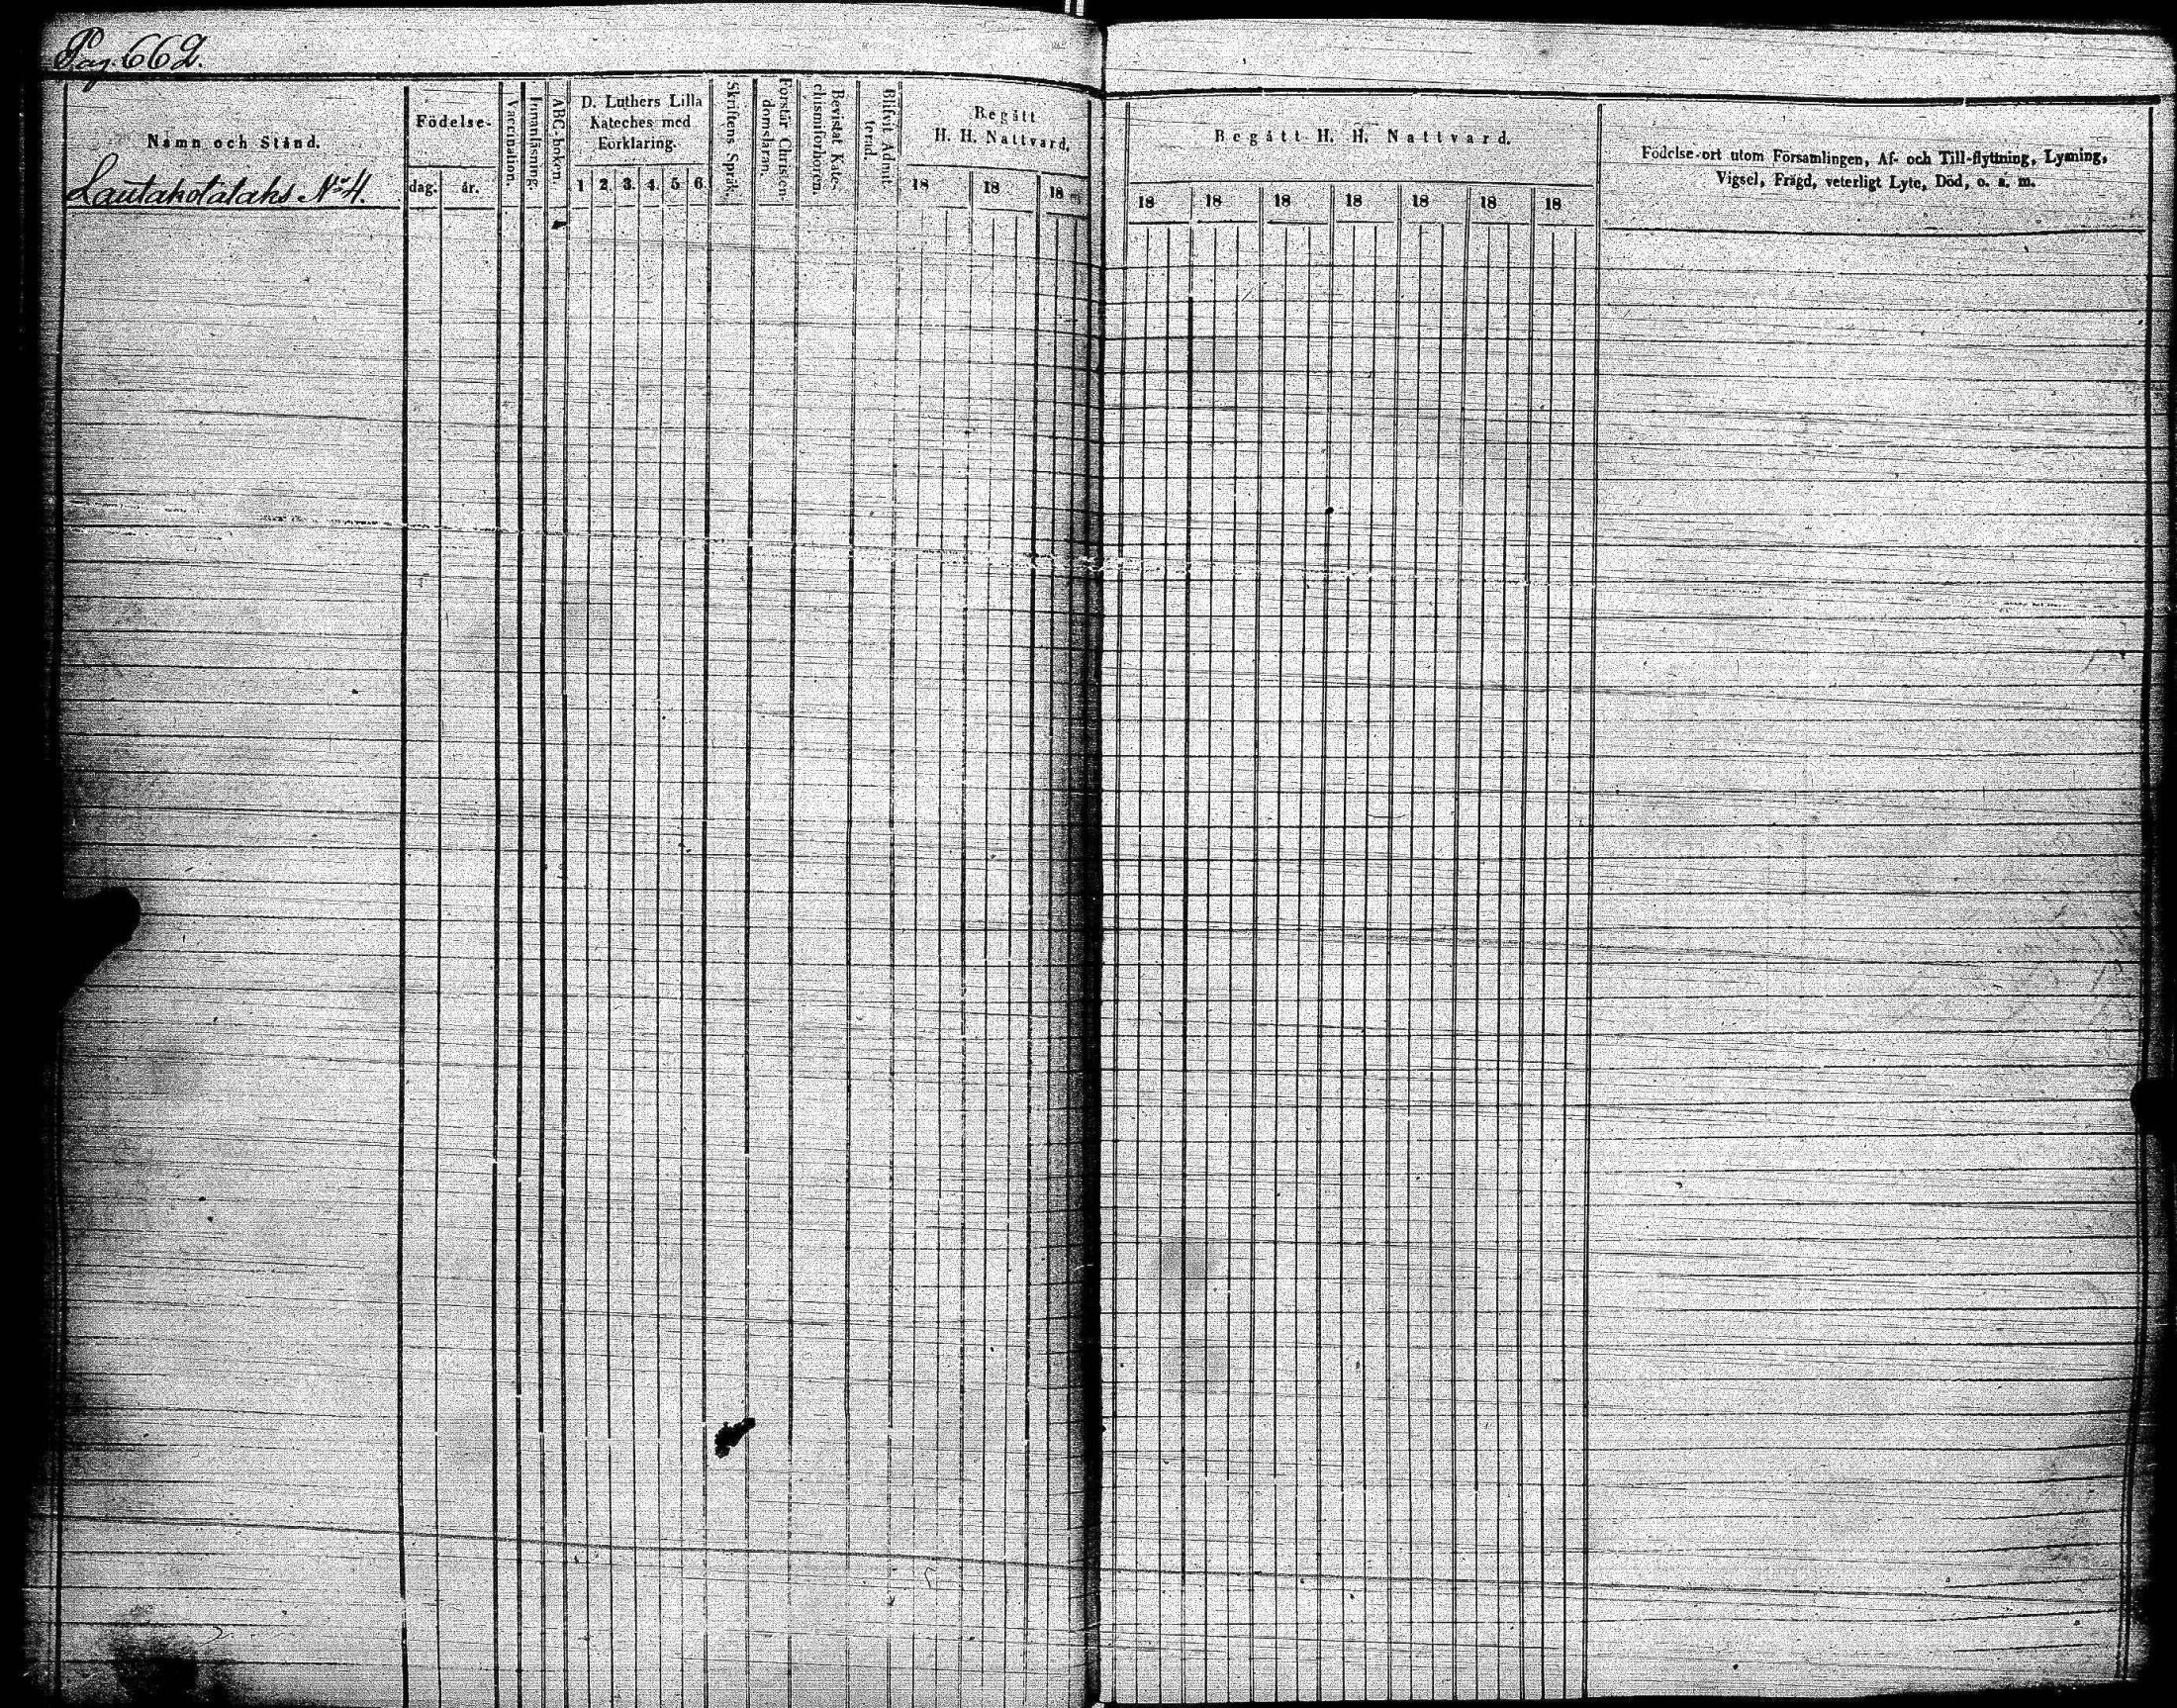 Pag. 662.
Namn och Stånd.
Lautakotataks No 4.
Födelse-
dag. år.
Vaccination.
Innanläsning.
ABC-boken.
D. Luthers Lilla
Kateches med
Förklaring.
1 2. 3. 4. 5 6
Skriftens Språk.
Förstår Christen-
domsläran.
Bevistat Kate-
chismiförhören.
Blifvit Admit-
terad.
Begått
H. H. Nattvard.
18 18 18
Begått H. H. Nattvard.
18 18 18 18 18 18 18
Födelse-ort utom Församlingen, Af- och Till-flyttning, Lysning,
Vigsel, Frägd, veterligt Lyte, Död, o. s. m.